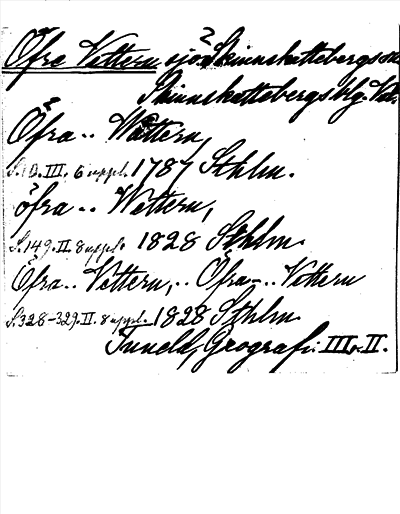 Öfre Vettern sjö 2 Skinnskattebergs sn
Skinnskattebergs blg. Vstm.
Öfra .. Wättern,
S. 10. III. 6 uppl. 1787 Sthlm.
öfra .. Wettern,
S. 149. II. 8 uppl. 1828 Sthlm.
Öfra .. Vettern, .. Öfra .. Vettern
S. 328-329. II. 8 uppl. 1828 Sthlm.
Tuneld, Geografi. III o. II.